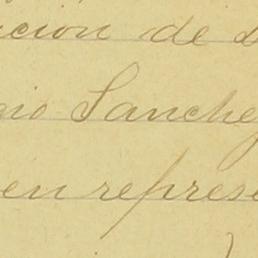 cion de
nio Sanche
en represe